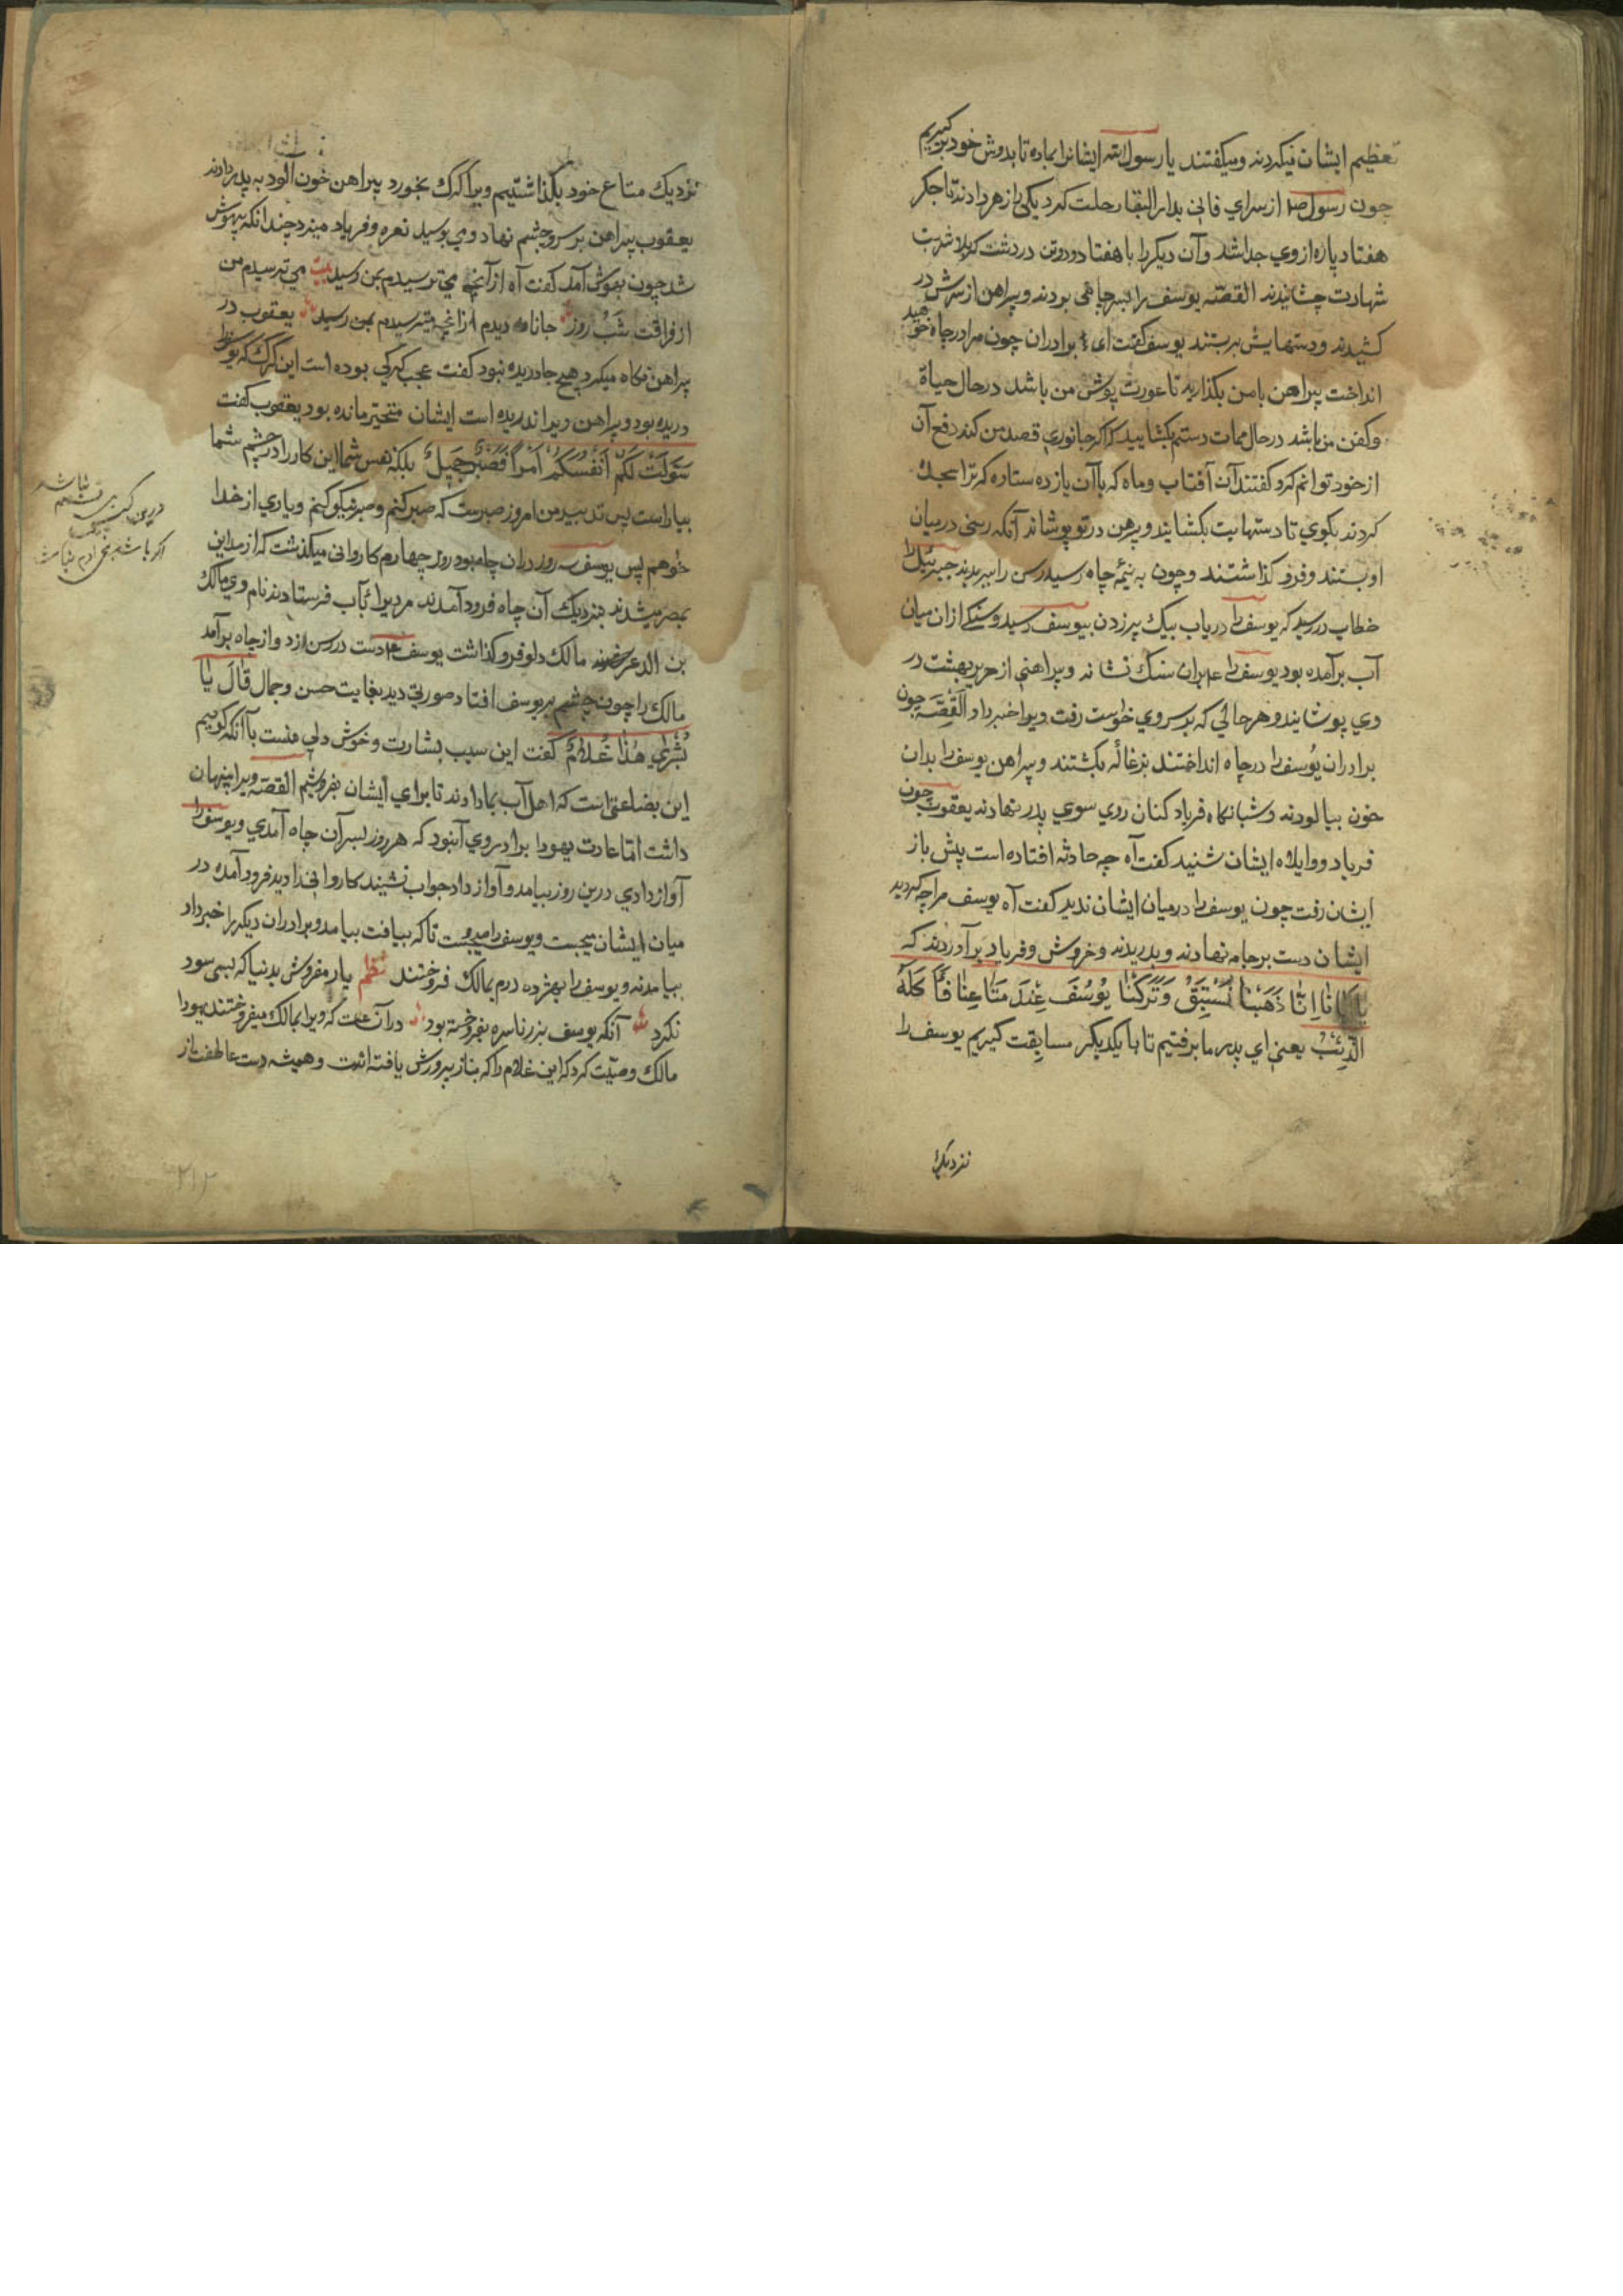 تعظیم ایشان میکردند ومیکفتند یا رسول الله ایشانرا بماده تا بدوش خود برکیریم
چون رسول صلم ازسرای فانی بدار البقا رحلت کرد یکی را زهر دادند تا جکر
هفتاد پاره ازوی جدا شد وآن دیکررا با هفتاد ودوتن دردشت کربلا شربت
شهادت چشانیدند القصّه یوسف را بسر چاهی بودند وپیراهن از سرش در
کشیدند ودستهایش بربستند یوسف کفت ای برادران چون مرا درچاه خواهید
انداخت پیراهن بامن بکذارید تا عورت پوش من باشد درحال حیاة
وکفن من باشد درحال ممات دستم بکشایید که اکر جانوری قصد من کند دفع آن
ازخود توانم کرد کفتند آن آفتاب وماه که باآن یازده ستاره که ترا سجده
کردند بکوی تا دستهایت بکشایند وپیرهن درتو پوشانند آنکه رسنی درمیان
او بستند وفرو کذاشتند وچون به نیمۀ چاه رسید رسن را ببریدند جبرئیل را
خطاب دررسید که یوسف را دریاب بیک پر زدن بیوسف رسید وسنکی ازان میان
آب برآمده بود یوسف را بران سنک نشاند وپیراهنی از حریر بهشت در
وی پوشانید وهرحالی که برسروی خواست رفت ویرا خبر داد القصّه چون
برادران یوسف را درچاه انداختند بزغاله بکشتند وپیراهن یوسف را بدان
خون بیالودند وشبانکاه فریاد کنان روی سوی پدر نهادند یعقوب چون
فریاد وواویلاه ایشان شنید کفت آه چه حادثه افتاده است پیش باز
ایشان رفت چون یوسف را درمیان ایشان ندید کفت آه یوسف مرا چه کردید
ایشان دست برجامه نهادند وبدریدند وخروش وفریاد برآوردند که
یا ابانا انّا ذهبنا نستبق وترکنا یوسف عند متاعنا فأکله
الذّئب یعنی ای پدر ما برفتیم تا با یکدیکر مسابقت کیریم یوسف را
نزدیک
نزدیک متاع خود بکذاشتیم ویرا کرک بخورد پیراهن خون آلود به پدر دادند
یعقوب پیراهن برسر وچشم نهاد ومی بوسید نعره وفریاد میزد چندانکه بیهوش
شد چون بهوش آمد کفت آه ازآنچه می ترسیدم بمن رسید بیت می ترسیدم من
ازفراقت شب روز جانا دیدم ازانچه میترسیدم بمن رسید یعقوب در
پیراهن نکاه میکرد هیچ جا دریده نبود کفت عجب کرکی بوده است این کرک که یوسف را
دریده بود وپیراهن ویرا ندریده است ایشان متحیّر مانده بود یعقوب کفت
سوّلت لکم انفسکم امرا فصبر جمیل بلکه نفس شما این کار را درچشم شما
بیاراست پس تدبیر من امروز صبرست که صبر کنم وصبر نیکو کنم ویاری از خدا
خواهم پس یوسف سه روز دران چاه بود روز چهارم کاروانی میکذشت که از مداین
بمصر میشدند بنزدیک آن چاه فرود آمدند مردیرا برای آب فرستادند نام وی مالک
بن الذعر مالک دلو فرو کذاشت یوسف دست در رسن زد وازچاه برآمد
مالک را چون چشم بریوسف افتاد صورتی دید بغایت حسن وجمال قال یا
بشری هذا غلام کفت این سبب بشارت وخوش دلی منست باآنکه کوییم
این بضاعتی است که اهل آب بما دادند تا برای ایشان بفروشیم القصّه ویرا پنهان
داشت امّا عادت یهودا برادر وی آن بود که هرروز بسر آن چاه آمدی ویوسف را
آواز دادی درین روز بیامد وآواز داد جواب نشنید کاروانی را دید فرود آمده در
میان ایشان بجست ویوسف را میجست تا که بیافت بیامد وبرادران دیکررا خبر داد
بیامدند ویوسف را بهژده درم بمالک فروختند نظم یار مفروش بدنیا که بسی سود
نکرد آنکه یوسف بزر ناسره بفروخته بود درآن ساعت که ویرا بمالک میفروختند یهودا
مالک وصیّت کرد که این غلام را که بناز پرورش یافته است وهمیشه دست عاطفت از
۲۱۲